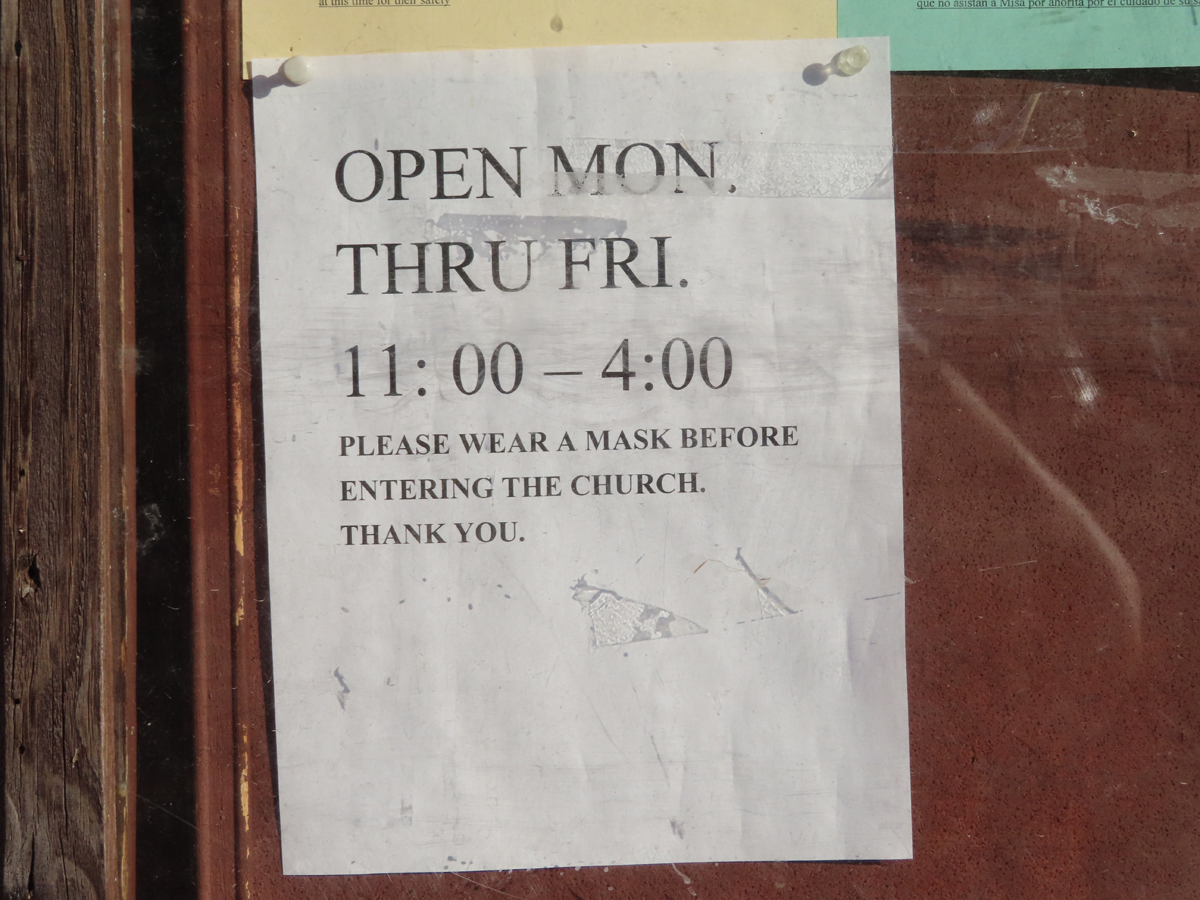 at this time for their safety
que no asistan a Misa por ahorita por el cuidado de su
OPEN MON.
THRU FRI.
11: 00 – 4:00
PLEASE WEAR A MASK BEFORE
ENTERING THE CHURCH.
THANK YOU.